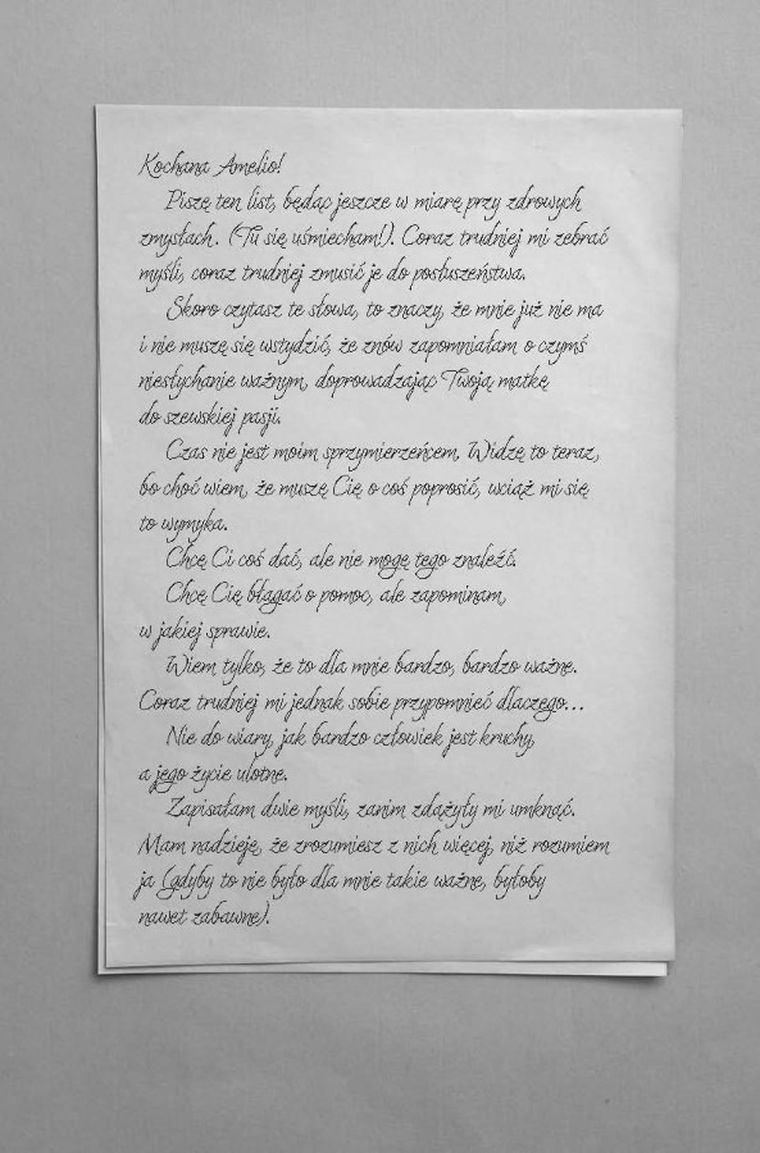 Kochana Amelio!
Piszę ten list, będąc jeszcze w miarę przy zdrowych
zmysłach. (Tu się uśmiecham!). Coraz trudniej mi zebrać
myśli, coraz trudniej zmusić je do posłuszeństwa.
Skoro czytasz te słowa, to znaczy, że mnie już nie ma
i nie muszę się wstydzić, że znów zapomniałam o czymś
niesłychanie ważnym, doprowadzając Twoją matkę
do szewskiej pasji.
Czas nie jest moim sprzymierzeńcem. Widzę to teraz,
bo choć wiem, że muszę Cię o coś poprosić, wciąż mi się
to wymyka.
Chcę Ci coś dać, ale nie mogę tego znaleźć.
Chcę Cię błagać o pomoc, ale zapominam,
w jakiej sprawie.
Wiem tylko, że to dla mnie bardzo, bardzo ważne.
Coraz trudniej mi jednak sobie przypomnieć dlaczego...
Nie do wiary, jak bardzo człowiek jest kruchy,
a jego życie ulotne.
Zapisałam dwie myśli, zanim zdążyły mi umknąć.
Mam nadzieję, że zrozumiesz z nich więcej, niż rozumiem
ja (gdyby to nie było dla mnie takie ważne, byłoby
nawet zabawne).